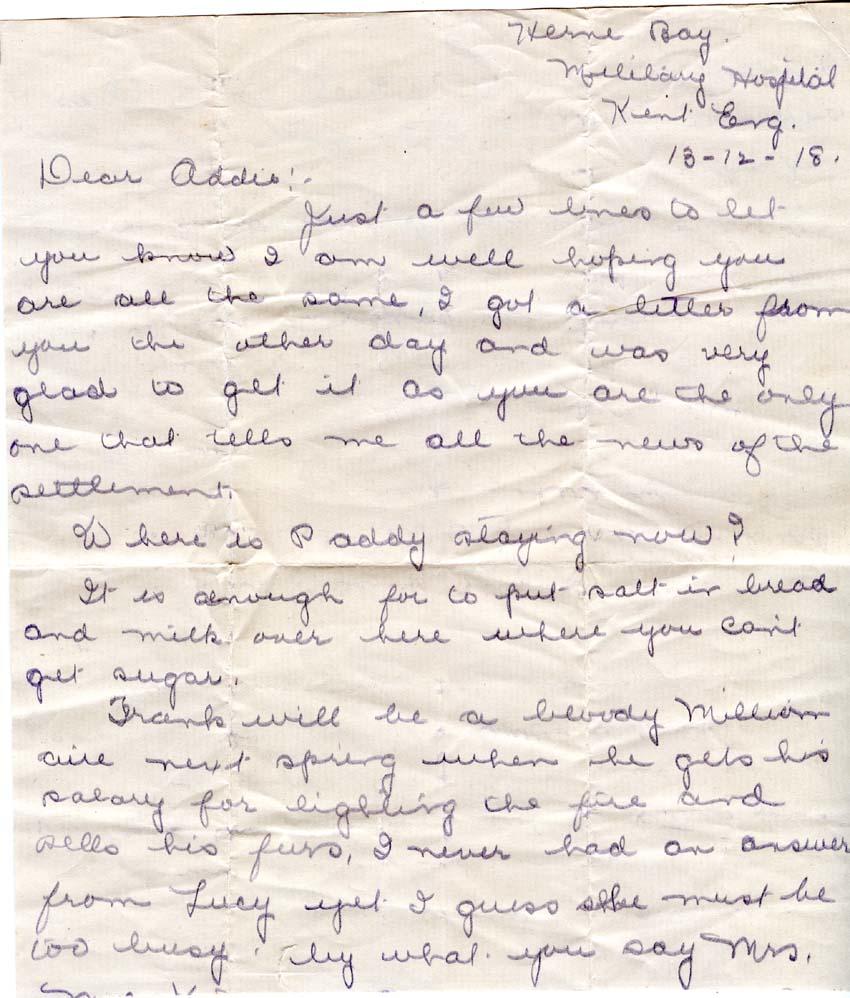 Herne Bay.
Military Hospital
Kent Eng.
13-12-18.
Dear Addie:-
Just a few lines to let
you know I am well hoping you
are all the same, I got a letter from
you the other day and was very
glad to get it as you are the only
one that tells me all the news of the
settlement.
Where is Paddy staying now?
It is enough for to put salt in bread
and milk over here where you can't
get sugar.
Frank will be a bloody Million
aire next spring when he gets his
salary for lighting the fire and
sells his furs, I never had an answer
from Lucy yet I guess she must be
too busy. By what you say Mrs.